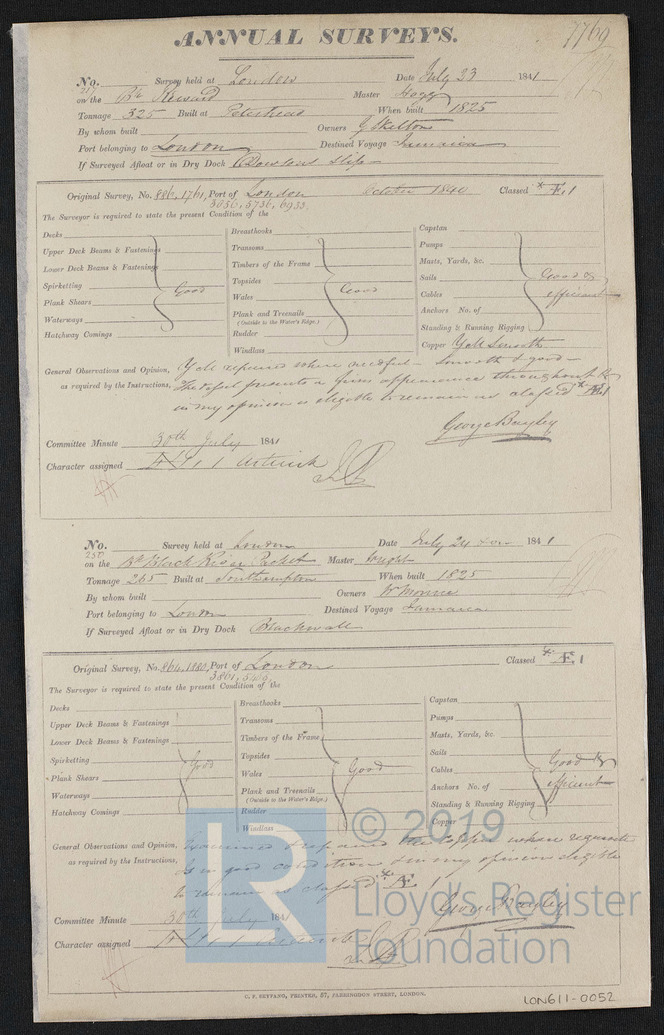 7769
ANNUAL SURVEYS.
No. 217 Survey held at London Date July 23 1841
on the Bk Steward Master Hogg
Tonnage 325 Built at Peterhead When built 1825
By whom built Owners G Skelton
Port belonging to London Destined Voyage Jamaica
If Surveyed Afloat or in Dry Dock
Original Survey, No. 886, 1761, Port of London October 1840 Classed * Æ 1
3056, 5736, 6953
The Surveyor is required to state the present Condition of the
Decks
Upper Deck Beams & Fastenings
Lower Deck Beams & Fastenings
Spirketting
Plank Shears
Waterways
Hatchway Comings
Good
Breasthooks
Transoms
Timbers of the Frame
Topsides
Wales
Plank and Treenails
(Outside to the Water's Edge.)
Rudder
Windlass
Good
Capstan
Pumps
Masts, Yards, &c.
Sails
Cables
Anchors No. of
Standing & Running Rigging
Copper Y M Smooth
Good & efficient
General Observations and Opinion, Y M repaired where needful smooth & good
as required by the Instructions, The vessel presents a firm appearance throughout &
in my opinion is eligible to remain as classed * Æ 1
George Bayley
Committee Minute 30th July 1841
Character assigned
No. 250 Survey held at London Date July 24 1841
on the Bk Black River Packet Master Wright
Tonnage 265 Built at Southampton When built 1825
By whom built Owners
Port belonging to London Destined Voyage Jamaica
If Surveyed Afloat or in Dry Dock Blackwall
Original Survey, No. 864, 1980, Port of London Classed * Æ 1
The Surveyor is required to state the present Condition of the
Decks
Upper Deck Beams & Fastenings
Lower Deck Beams & Fastenings
Spirketting
Plank Shears
Waterways
Hatchway Comings
Good
Breasthooks
Transoms
Timbers of the Frame
Topsides
Wales
Plank and Treenails
(Outside to the Water's Edge.)
Rudder
Windlass
Good
Capstan
Pumps
Masts, Yards, &c.
Sails
Cables
Anchors No. of
Standing & Running Rigging
Copper
Good & efficient
General Observations and Opinion, Examined & repaired the copper where requisite
as required by the Instructions, Is in good condition & in my opinion eligible
to remain as classed * Æ 1
George Bayley
Committee Minute 30th July 1841
Character assigned
C. F. SEYFANG, PRINTER, 57, FARRINGDON STREET, LONDON.
LON611-0052
LR
© 2019
Lloyd's Register
Foundation